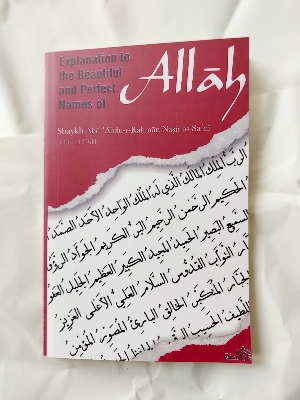 Explanation to
the Beautiful
and Perfect
Names of
Allāh
Shaykh Abd 'Abdu-r-Rahmān Nāsir as-Sa'dī
الرب الملك المالك الذي له الملك الواحد الأحد الصمد
الحكيم الرحمن الرحيم البر الكريم الجواد الرؤوف
السميع البصير الحميد المجيد الكبير العظيم الجليل العفو
التواب القدوس السلام العلي الأعلى العزيز
الجبار المتكبر الخالق البارئ المصور المؤمن
اللطيف الحسيب